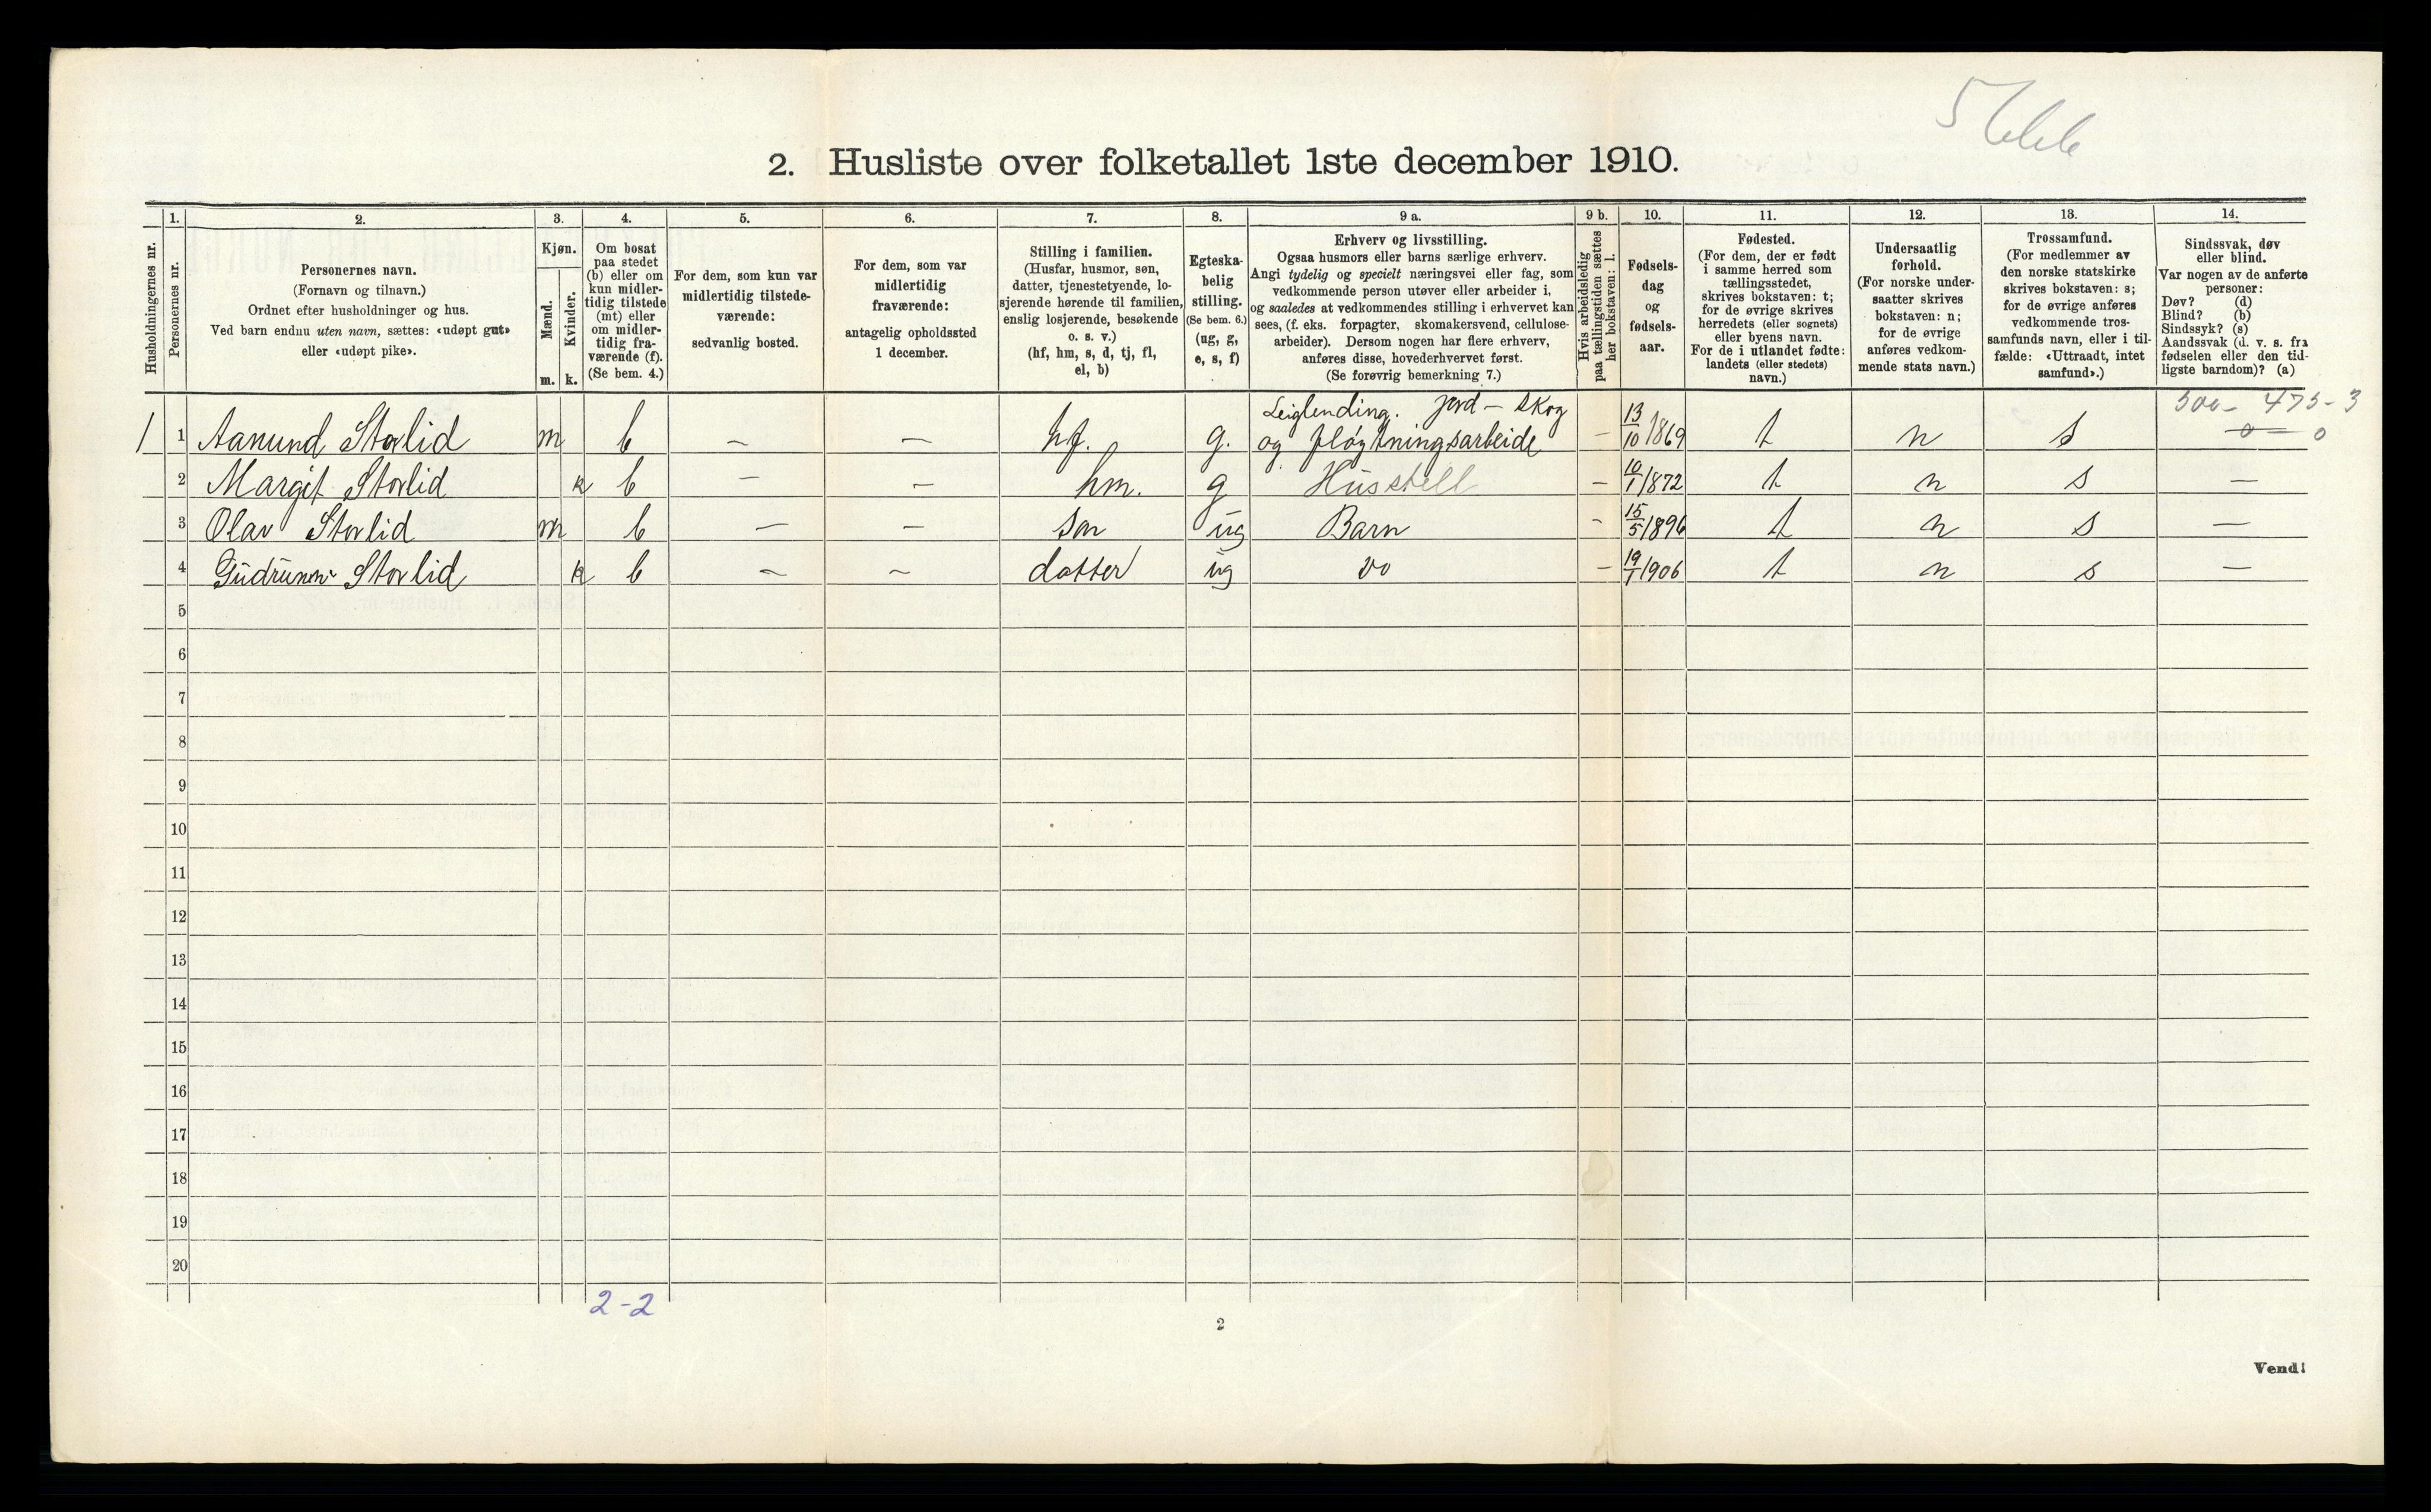 2. Husliste over folketallet 1ste december 1910.
Husholdningernes nr.
1.
Personernes nr.
2.
Personernes navn.
(Fornavn og tilnavn.)
Ordnet efter husholdninger og hus.
Ved barn endnu uten navn, sættes: «udøpt gut»
eller «udøpt pike».
3.
Kjøn.
Mænd.
Kvinder.
m. k.
4.
Om bosat
paa stedet
(b) eller om
kun midler-
tidig tilstede
(mt) eller
om midler-
tidig fra-
værende (f).
(Se bem. 4.)
5.
For dem, som kun var
midlertidig tilstede-
værende:
sedvanlig bosted.
6.
For dem, som var
midlertidig
fraværende:
antagelig opholdssted
1 december.
7.
Stilling i familien.
(Husfar, husmor, søn,
datter, tjenestetyende, lo-
sjerende hørende til familien,
enslig losjerende, besøkende
o. s. v.)
(hf, hm, s, d, tj, fl,
el, b)
8.
Egteska-
belig
stilling.
(Se bem. 6.)
(ug, g,
e, s, f)
9 a.
Erhverv og livsstilling.
Ogsaa husmors eller barns særlige erhverv.
Angi tydelig og specielt næringsvei eller fag, som
vedkommende person utøver eller arbeider i,
og saaledes at vedkommendes stilling i erhvervet kan
sees, (f. eks. forpagter, skomakersvend, cellulose-
arbeider). Dersom nogen har flere erhverv,
anføres disse, hovederhvervet først.
(Se forøvrig bemerkning 7.)
9 b.
Hvis arbeidsledig
paa tællingstiden sættes
her bokstaven: l.
10.
Fødsels-
dag
og
fødsels-
aar.
11.
Fødested.
(For dem, der er født
i samme herred som
tællingsstedet,
skrives bokstaven: t;
for de øvrige skrives
herredets (eller sognets)
eller byens navn.
For de i utlandet fødte:
landets (eller stedets)
navn.)
12.
Undersaatlig
forhold.
(For norske under-
saatter skrives
bokstaven: n;
for de øvrige
anføres vedkom-
mende stats navn.)
13.
Trossamfund.
(For medlemmer av
den norske statskirke
skrives bokstaven: s;
for de øvrige anføres
vedkommende tros-
samfunds navn, eller i til-
fælde: «Uttraadt, intet
samfund».)
14.
Sindssvak, døv
eller blind.
Var nogen av de anførte
personer:
Døv? (d)
Blind? (b)
Sindssyk? (s)
Aandssvak (d. v. s. fra
fødselen eller den tid-
ligste barndom)? (a)
500 - 475 - 3
Leiglending. jord - skog
1 1 Aanund Storlid m b - - hf. g. og fløytningsarbeide - 13/10 1869 t n s 0 0
2 Margit Storlid k b - - hm. g Husstell - 10/1 1872 t n s -
3 Olav Storlid m b - - son ug Barn - 15/5 1896 t n s -
4 Gudrunn Storlid k b - - dotter ug do - 19/1 1906 t n s -
5
6
7
8
9
10
11
12
13
14
15
16
17
18
19
20
2-2
2
Vend!